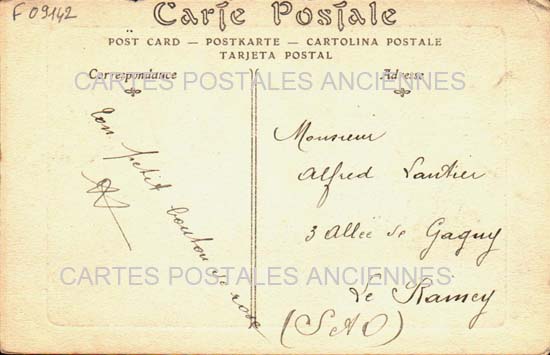 F 09142
Carte Postale
POST CARD — POSTKARTE — CARTOLINA POSTALE
TARJETA POSTAL
Correspondance
Adresse
CARTES POSTALES ANCIENNES
Ton petit bouton de rose
Monsieur
Alfred Lautier
3 Allée de Gagny
Le Raincy
(S&O)
CARTES POSTALES ANCIENNES